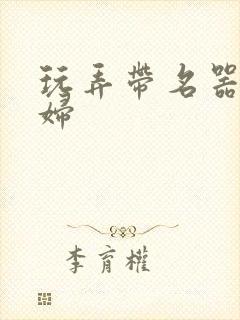 玩弄带名器
妇
李育權